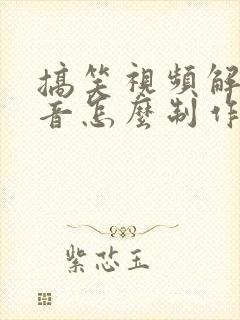 搞笑視頻解
音怎麼制作
紫芯玉